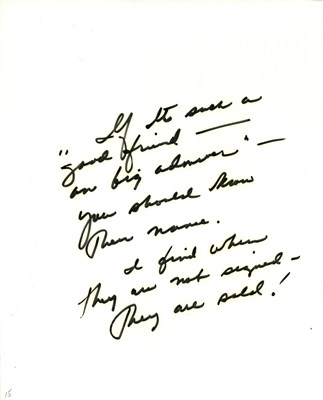 If its such a
"good friend —
or big admirer" —
you should know
Their name.
I find when
they are not signed —
They are sold!
15